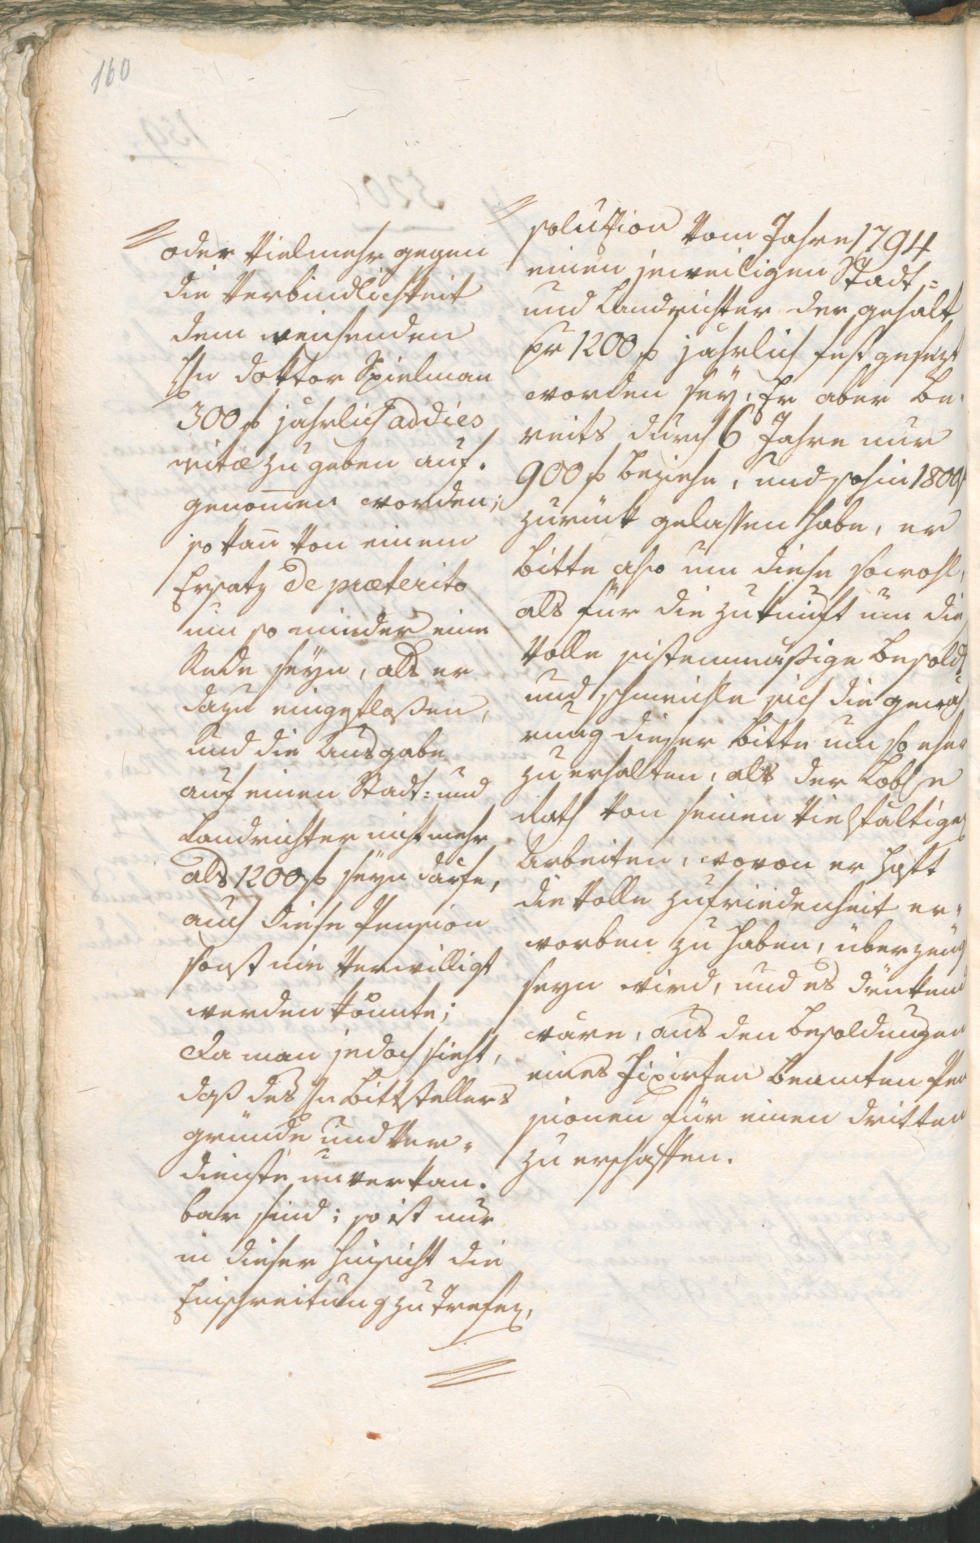 160
oder vielmehr gegen
die Verbindlichkeit
dem weichenden
Hn doktor Spielman
300 f jährlich addies
vitæ zu geben auf„
genomen worden;
so kan von einem
Ersatz de præterito
um so minder eine
Rede seyn, als er
dazu eingeflossen,
und die Ausgabe
auf einen Stadt= und
Landrichter nicht mehr
als 1200 f seyn darfe,
auch diese Pension
sonst nie verwilligt
werden könnte;
Da man jedoch sieht,
daß des Hn Bittstellers
gründe und Ver„
dienste unverkan„
bar sind; so ist nur
in dieser Hinsicht die
Einschreitung zu trefen,
solution vom Jahre 1794
einen jeweiligen Stadt=
und Landrichter der gehalt
pr 1200 f jährlich fest gesezt
worden sey, Er aber be„
reits durch 6 Jahre nur
900 f beziehe, und sohin 1800 f
zurück gelassen habe, er
bitte also um diese sowohl,
als für die zukunft um die
volle sistemmäßige besold
und schmeichle sich die gewäh
rung dieser bitte um so eher
zu erhalten, als der Löbl
Rath von seinen vielfältigen
Arbeiten, wovon er hoft
die volle zufriedenheit er„
worben zu haben, überzeugt
seyn wird, und es drükend
wäre, aus den besoldungen
eines fixirten beamten Pen
sionen für einen dritten
zu erschaffen.